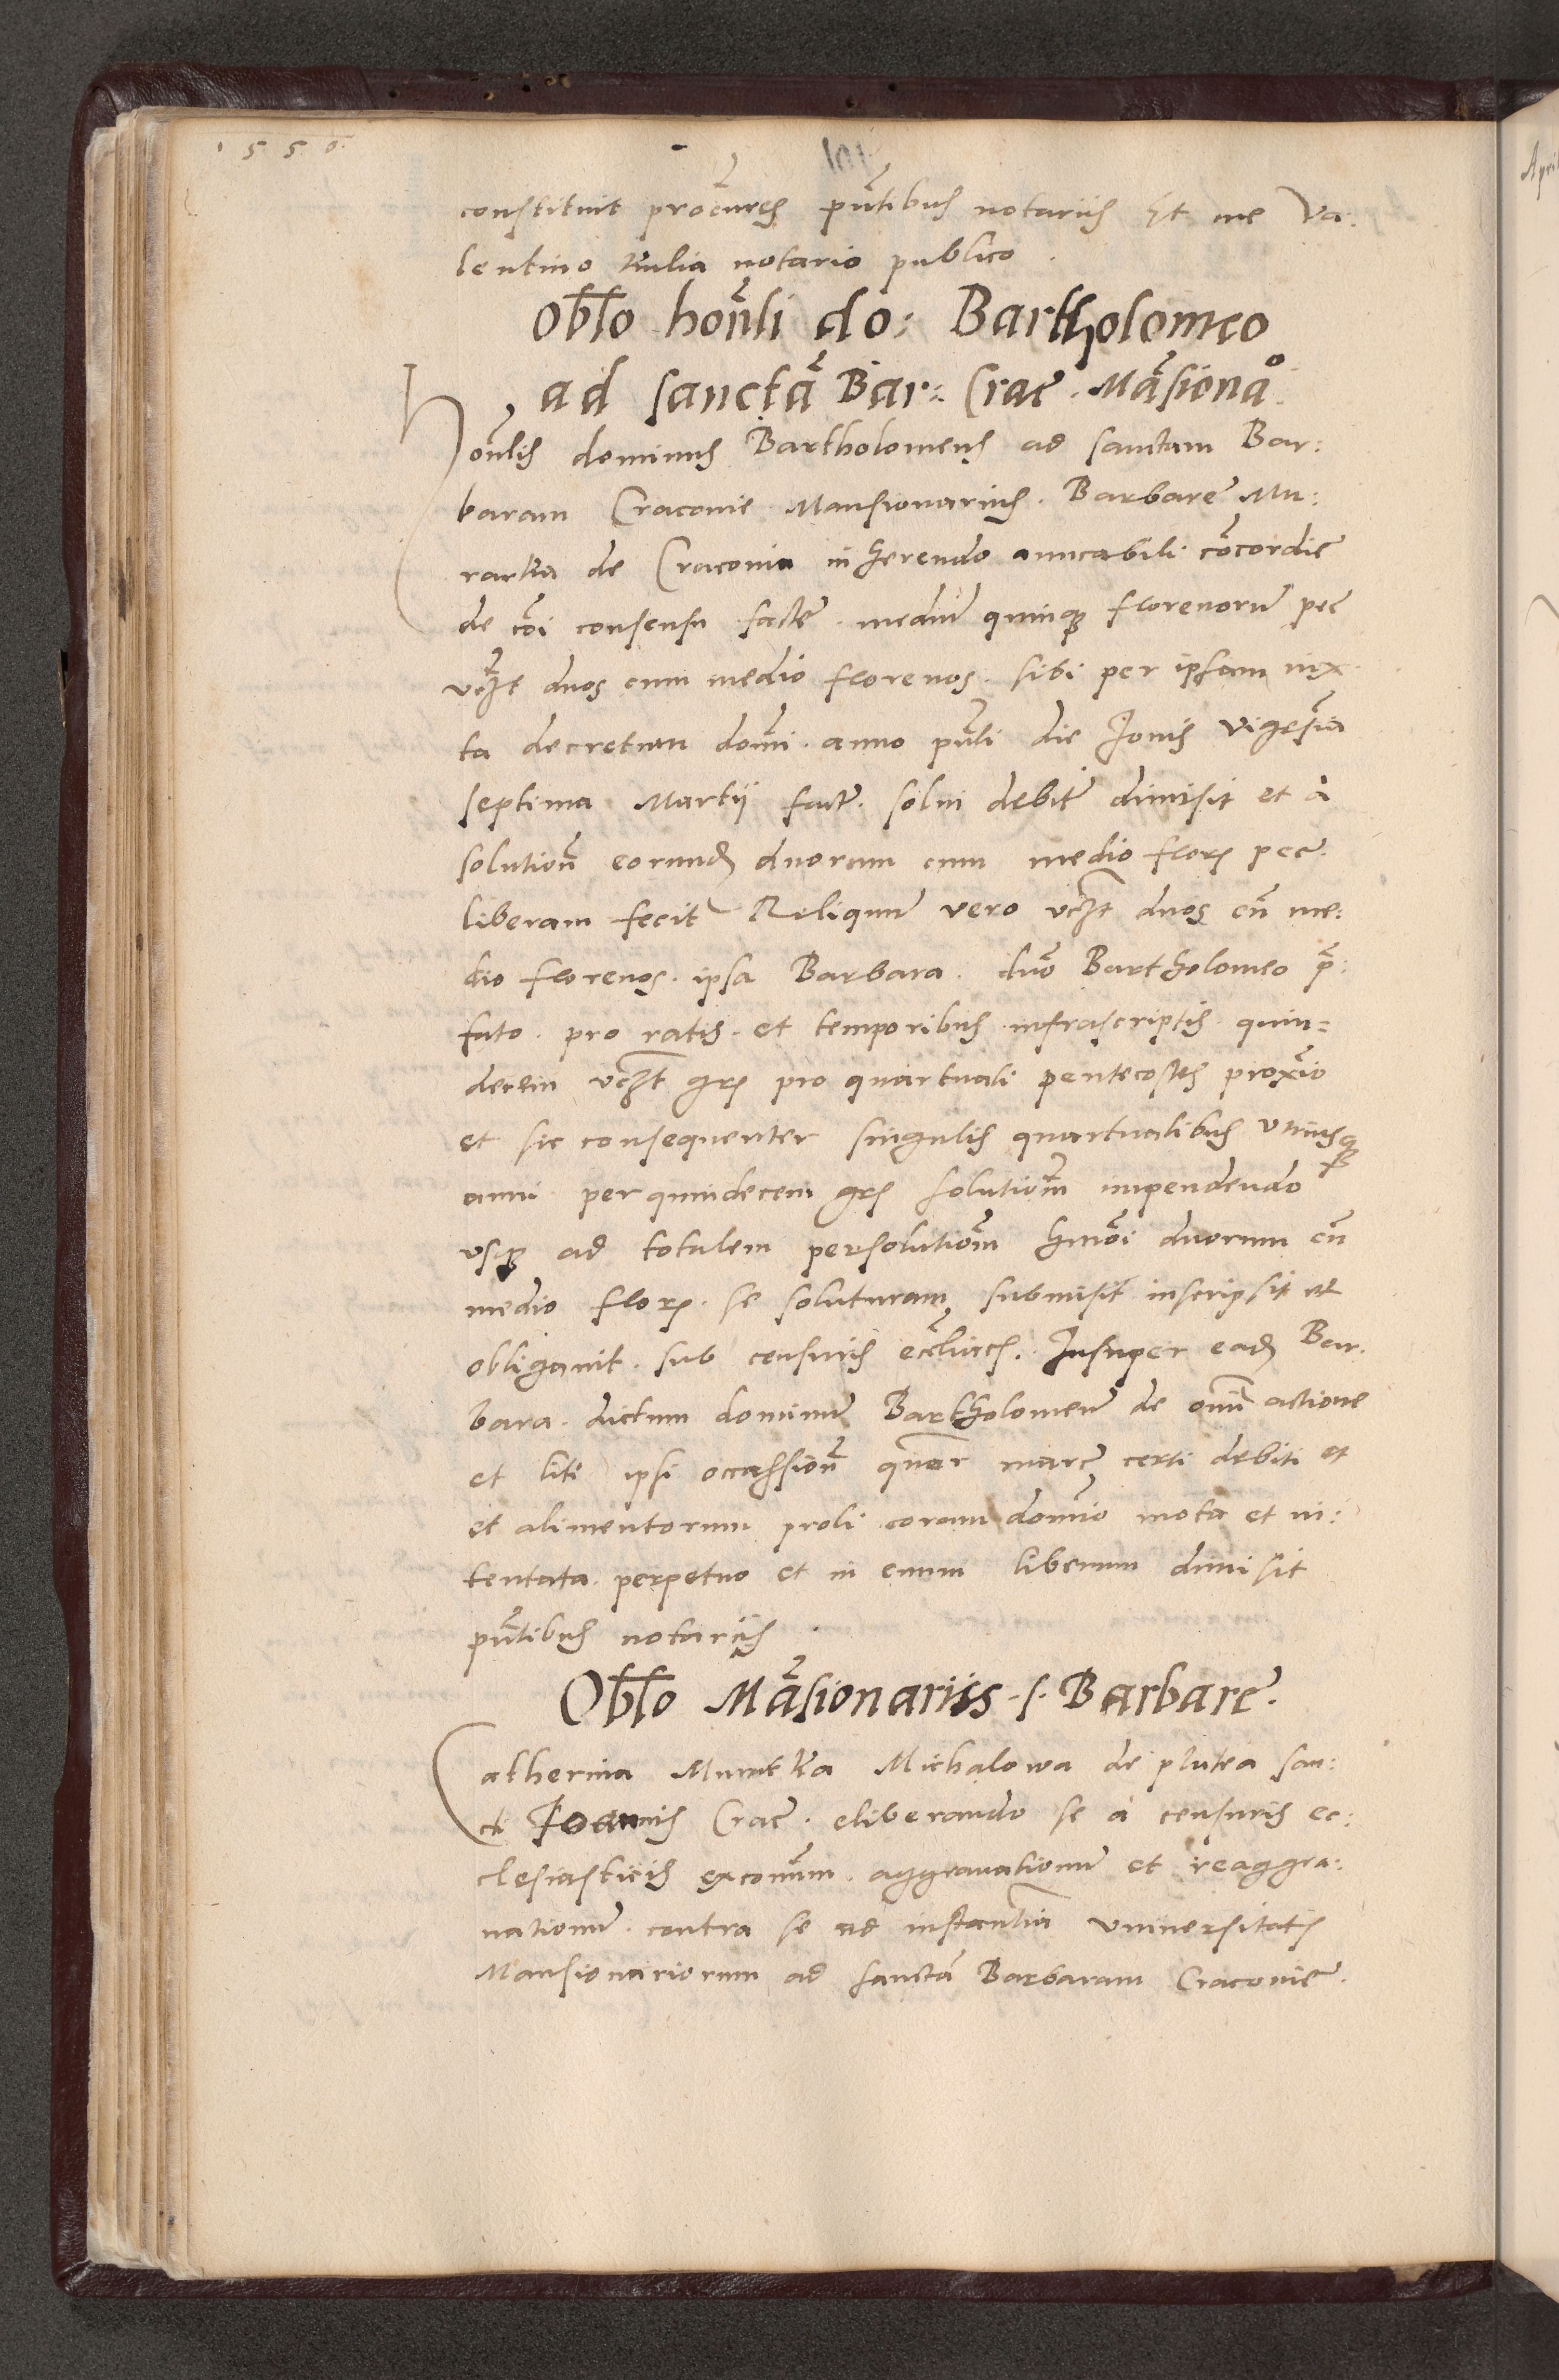 1550.
101
constituit procur̃es pñtibus notariis Et me Va:
lentino Rulia notario publico.
Obl̃o hoñli do: Bartholomeo
ad sanctã Bar: Crac̃. Mãsionaº.
Hoñlis dominus Bartholomeus ad sanctam Bar:
baram Cracovie Mansionarius. Barbare Mu:
rarka de Cracovia inherendo amicabili cõcordie
de cõi consensu facte. mediũ quinq florenorũ pec̃
vcz̃t duos cum medio florenos. sibi per ipsam iux
ta decretum domĩ. anno pñti die Jovis vigesĩa
septima Martij fact̃. solui debit̃ dimisit et à
solutioñ eorund duorum cum medio flor pec̃.
liberam fecit Reliquũ vero vcz̃t duos cũ me:
dio florenos. ipsa Barbara. dño Bartholomeo p̃:
fato. pro ratis. et temporibus infrascriptis. quin=
decem vcz̃t gr pro quartuali pentecostes proxĩo
et sic consequenter singulis quartualibus vniusq
anni per quindecem gr solutiõm impendendo
vsq ad totalem persolutiõm hmõi duorum cũ
medio flor. se soluturam submisit inscripsit et
obligauit. sub censuris eccl̃ticis. Insuper ead Bar.
bara. dictum dominũ Bartholomeũ de omñi actione
et liti ipsi occassioñ quar̃ marc̃ certi debiti et
et alimentorum proli coram domĩo mota et in:
tentata. perpetuo et in euum liberum dimisit
pñtibus notariis.
Obl̃o Mãsionariis s. Barbare.
Catherina Michalowa de platea san:
cti Joannis Crac̃. eliberando se à censuris ec:
clesiasticis excomm̃. aggrauationũ et reaggra:
uationũ. contra se ad instantiã vniuersitatis
Mansionariorum ad sanctã Barbaram Cracovie.
Apri